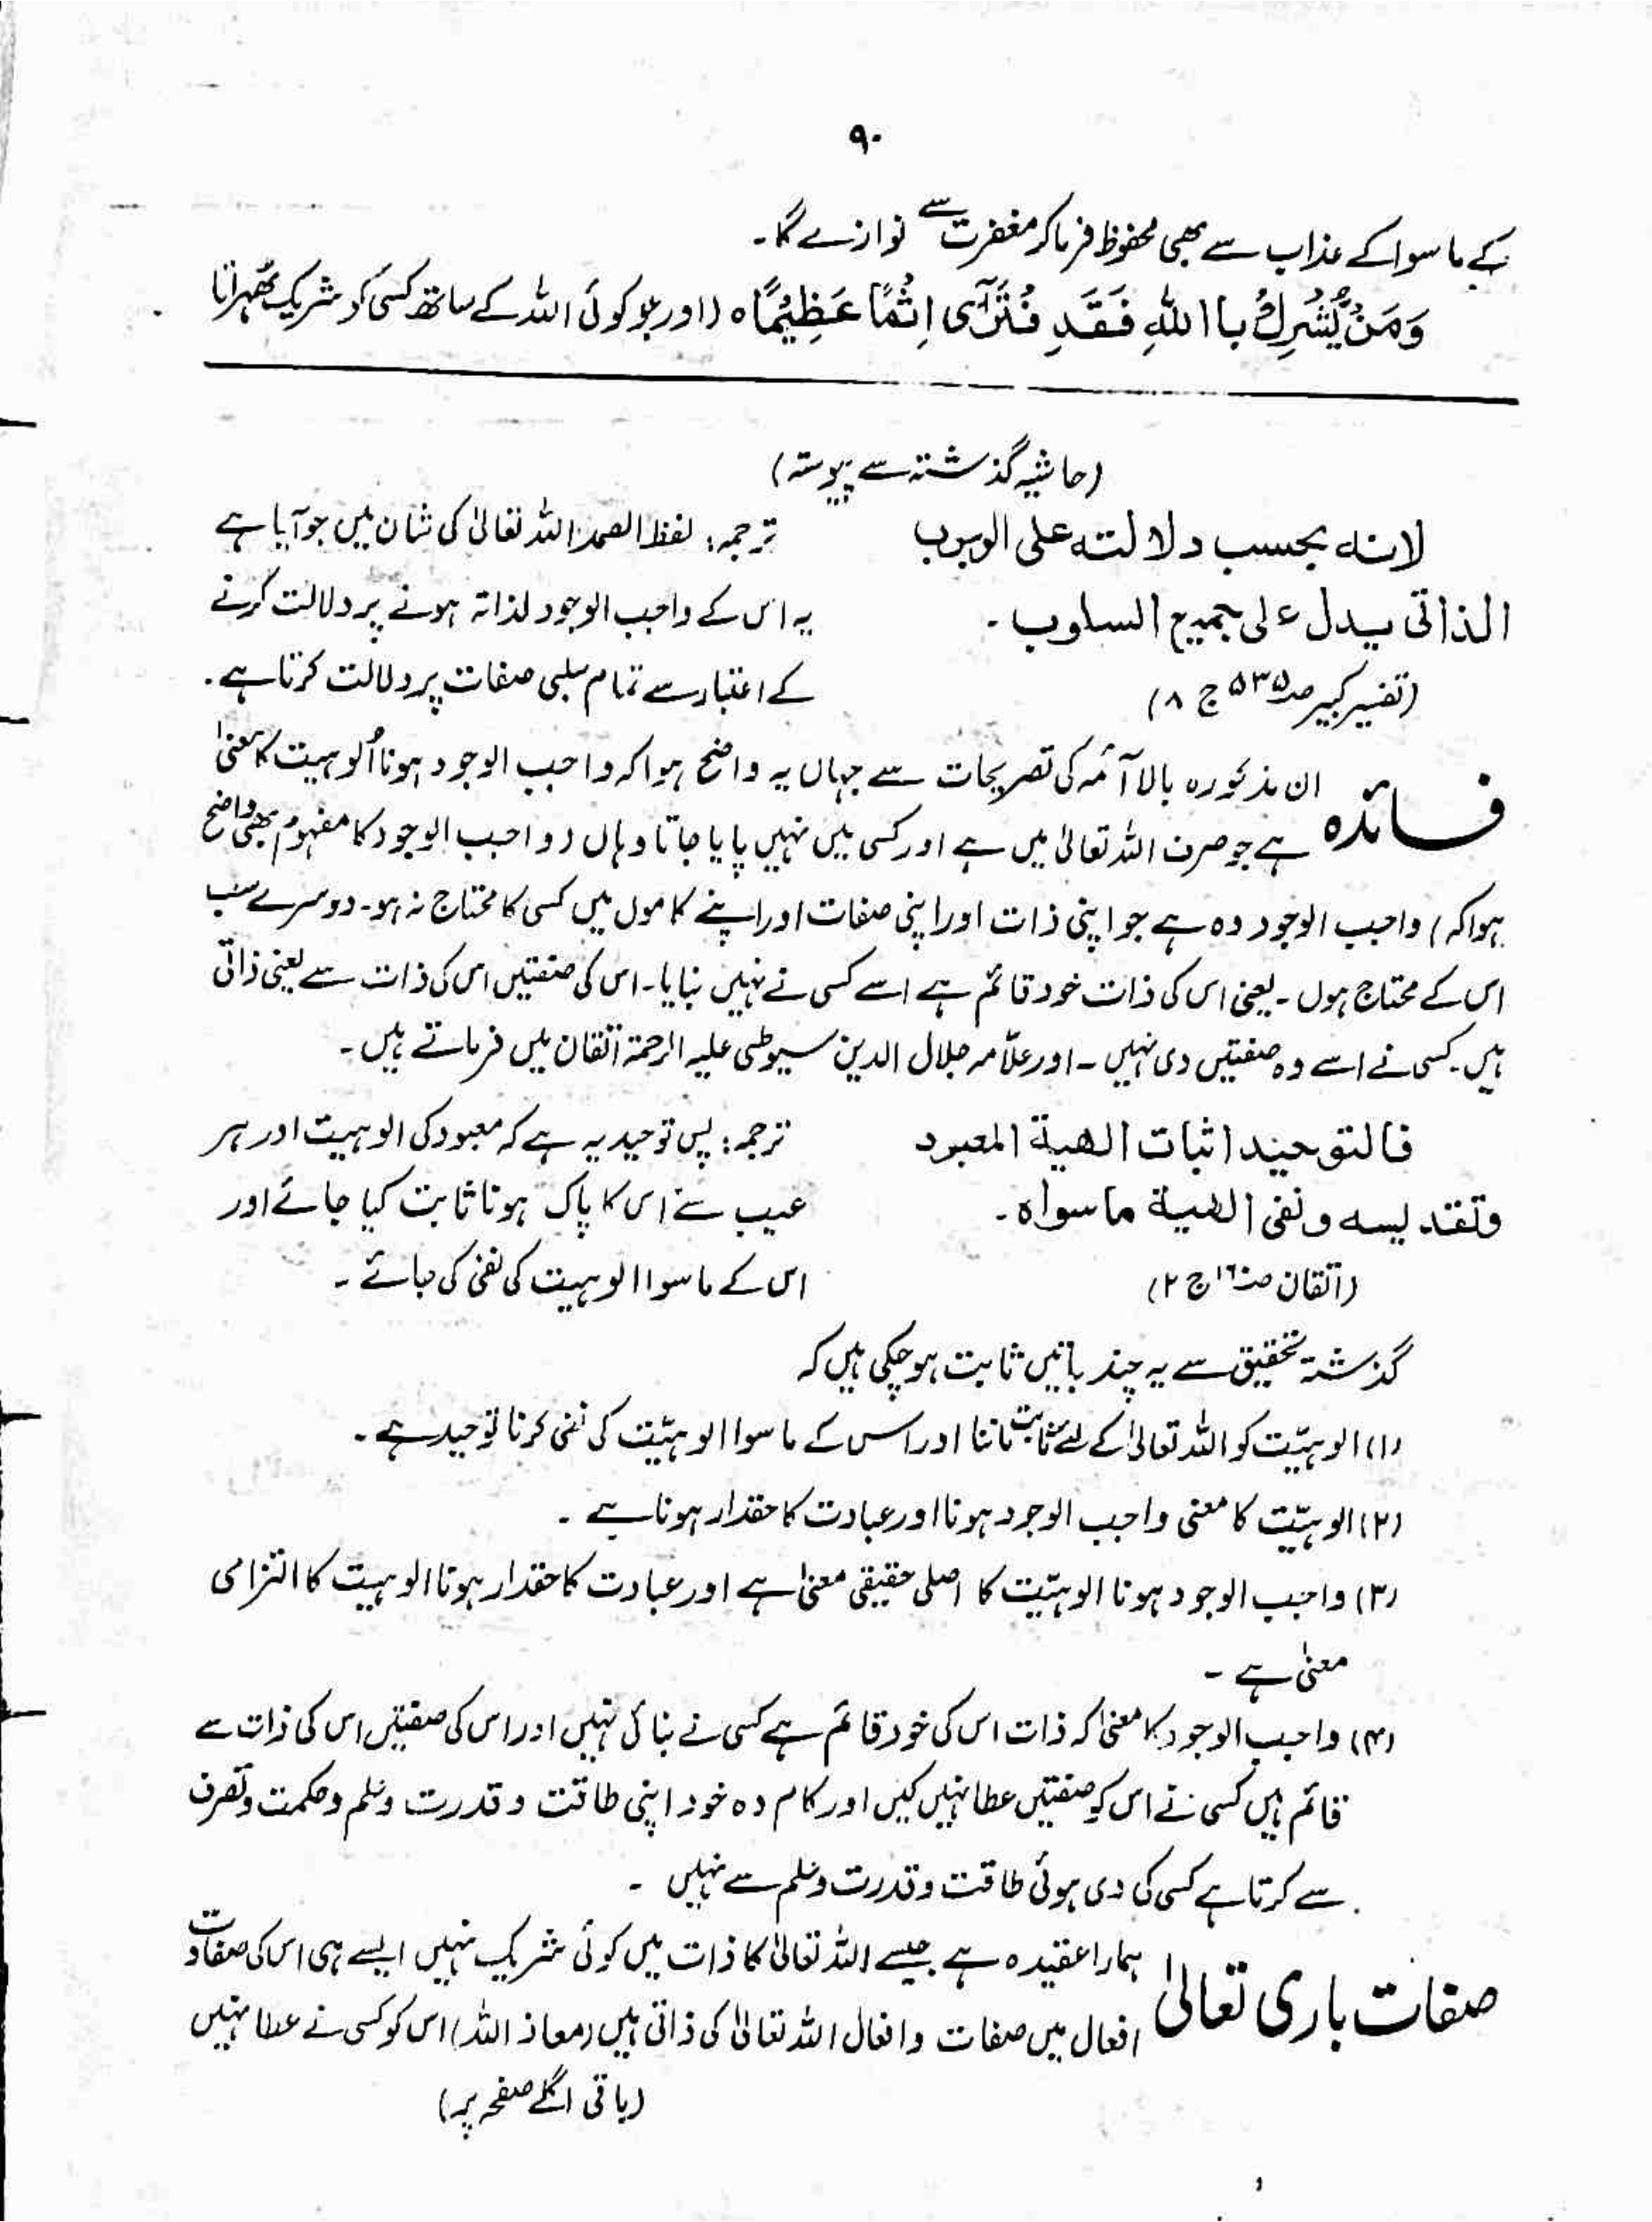 ۹۰
کے ماسوا کے عذاب سے بھی محفوظ فرما کر مغفرت سے نوازے گا۔
وَمَنْ یُّشْرِكْ بااللّٰهِ فَقَدِ فْتَرٰٓی اِثْمًا عَظِیْمًا ہ (اور جو کوئی اللہ کے ساتھ کسی کو شریک ٹھہراتا
(حاشیہ گذشتہ سے پیوستہ)
لانہ بحسب دلالتہ علی الوجوب
الذاتی یدل علی جمیع السلوب۔
(تفسیر کبیر صـ ۵۳۵ ج ۸)
ترجمہ: لفظ الصمد اللہ تعالیٰ کی شان میں جو آیا ہے
یہ اس کے واجب الوجود لذاتہ ہونے پر دلالت کرنے
کے اعتبار سے تمام سلبی صفات پر دلالت کرتا ہے۔
فائدہ ان مذکورہ بالا آئمہ کی تصریحات سے جہاں یہ واضح ہوا کہ واجب الوجود ہونا اُلوہیت کا معنیٰ
ہے جو صرف اللہ تعالیٰ میں ہے اور کسی میں نہیں پایا جاتا وہاں (واجب الوجود کا مفہوم بھی واضح
ہوا کہ) واجب الوجود وہ ہے جو اپنی ذات اور اپنی صفات اور اپنے کاموں میں کسی کا محتاج نہ ہو۔ دوسرے سب
اس کے محتاج ہوں۔ یعنی اس کی ذات خود قائم ہے اسے کسی نے نہیں بنایا۔ اس کی صفتیں اس کی ذات سے یعنی ذاتی
ہیں۔ کسی نے اسے وہ صفتیں دی نہیں۔ اور علّامہ جلال الدین سیوطی علیہ الرحمۃ اتقان میں فرماتے ہیں۔
فالتوحید اثبات الھیة المعبود
وتقدیسه ونفی الھیة ماسواہ۔
(اتقان صـ ۱۶ ج ۲)
ترجمہ: پس توحید یہ ہے کہ معبود کی الوہیت اور ہر
عیب سے اس کا پاک ہونا ثابت کیا جائے اور
اس کے ماسوا الوہیت کی نفی کی جائے۔
گذشتہ تحقیق سے یہ چند باتیں ثابت ہو چکی ہیں کہ
(۱) الوہیّت کو اللہ تعالیٰ کے لئے ثابت ماننا اور اس کے ماسوا الوہیّت کی نفی کرنا توحید ہے۔
(۲) الوہیّت کا معنی واجب الوجود ہونا اور عبادت کا حقدار ہونا ہے۔
(۳) واجب الوجود ہونا الوہیّت کا اصلی حقیقی معنیٰ ہے اور عبادت کا حقدار ہونا الوہیت کا التزامی
معنیٰ ہے۔
(۴) واجب الوجود کا معنیٰ کہ ذات اس کی خود قائم ہے کسی نے بنائی نہیں اور اس کی صفتیں اس کی ذات سے
قائم ہیں کسی نے اس کو صفتیں عطا نہیں کیں اور کام وہ خود اپنی طاقت و قدرت و علم و حکمت و تصرف
سے کرتا ہے کسی کی دی ہوئی طاقت و قدرت و علم سے نہیں۔
صفات باری تعالیٰ ہمارا عقیدہ ہے جیسے اللہ تعالیٰ کا ذات میں کوئی شریک نہیں ایسے ہی اس کی صفات و
افعال میں صفات و افعال اللہ تعالیٰ کی ذاتی ہیں (معاذ اللہ) اس کو کسی نے عطا نہیں
(باقی اگلے صفحہ پر)